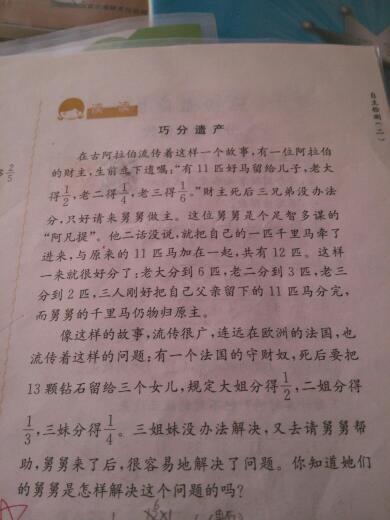 读一读
自主检测(二)
巧分遗产
在古阿拉伯流传着这样一个故事,有一位阿拉伯
的财主,生前立下遗嘱:“有11匹好马留给儿子,老大
得1/2,老二得1/4,老三得1/6。”财主死后三兄弟没办法
分,只好请来舅舅做主。这位舅舅是个足智多谋的
“阿凡提”。他二话没说,就把自己的一匹千里马牵了
进来,与原来的11匹马加在一起,共有12匹。这样
一来就很好分了:老大分到6匹,老二分到3匹,老三
分到2匹,三人刚好把自己父亲留下的11匹马分完,
而舅舅的千里马仍物归原主。
像这样的故事,流传很广,连远在欧洲的法国,也
流传着这样的问题:有一个法国的守财奴,死后要把
13颗钻石留给三个女儿,规定大姐分得1/2,二姐分得
1/3,三妹分得1/4。三姐妹没办法解决,又去请舅舅帮
助,舅舅来了后,很容易地解决了问题。你知道她们
的舅舅是怎样解决这个问题的吗?